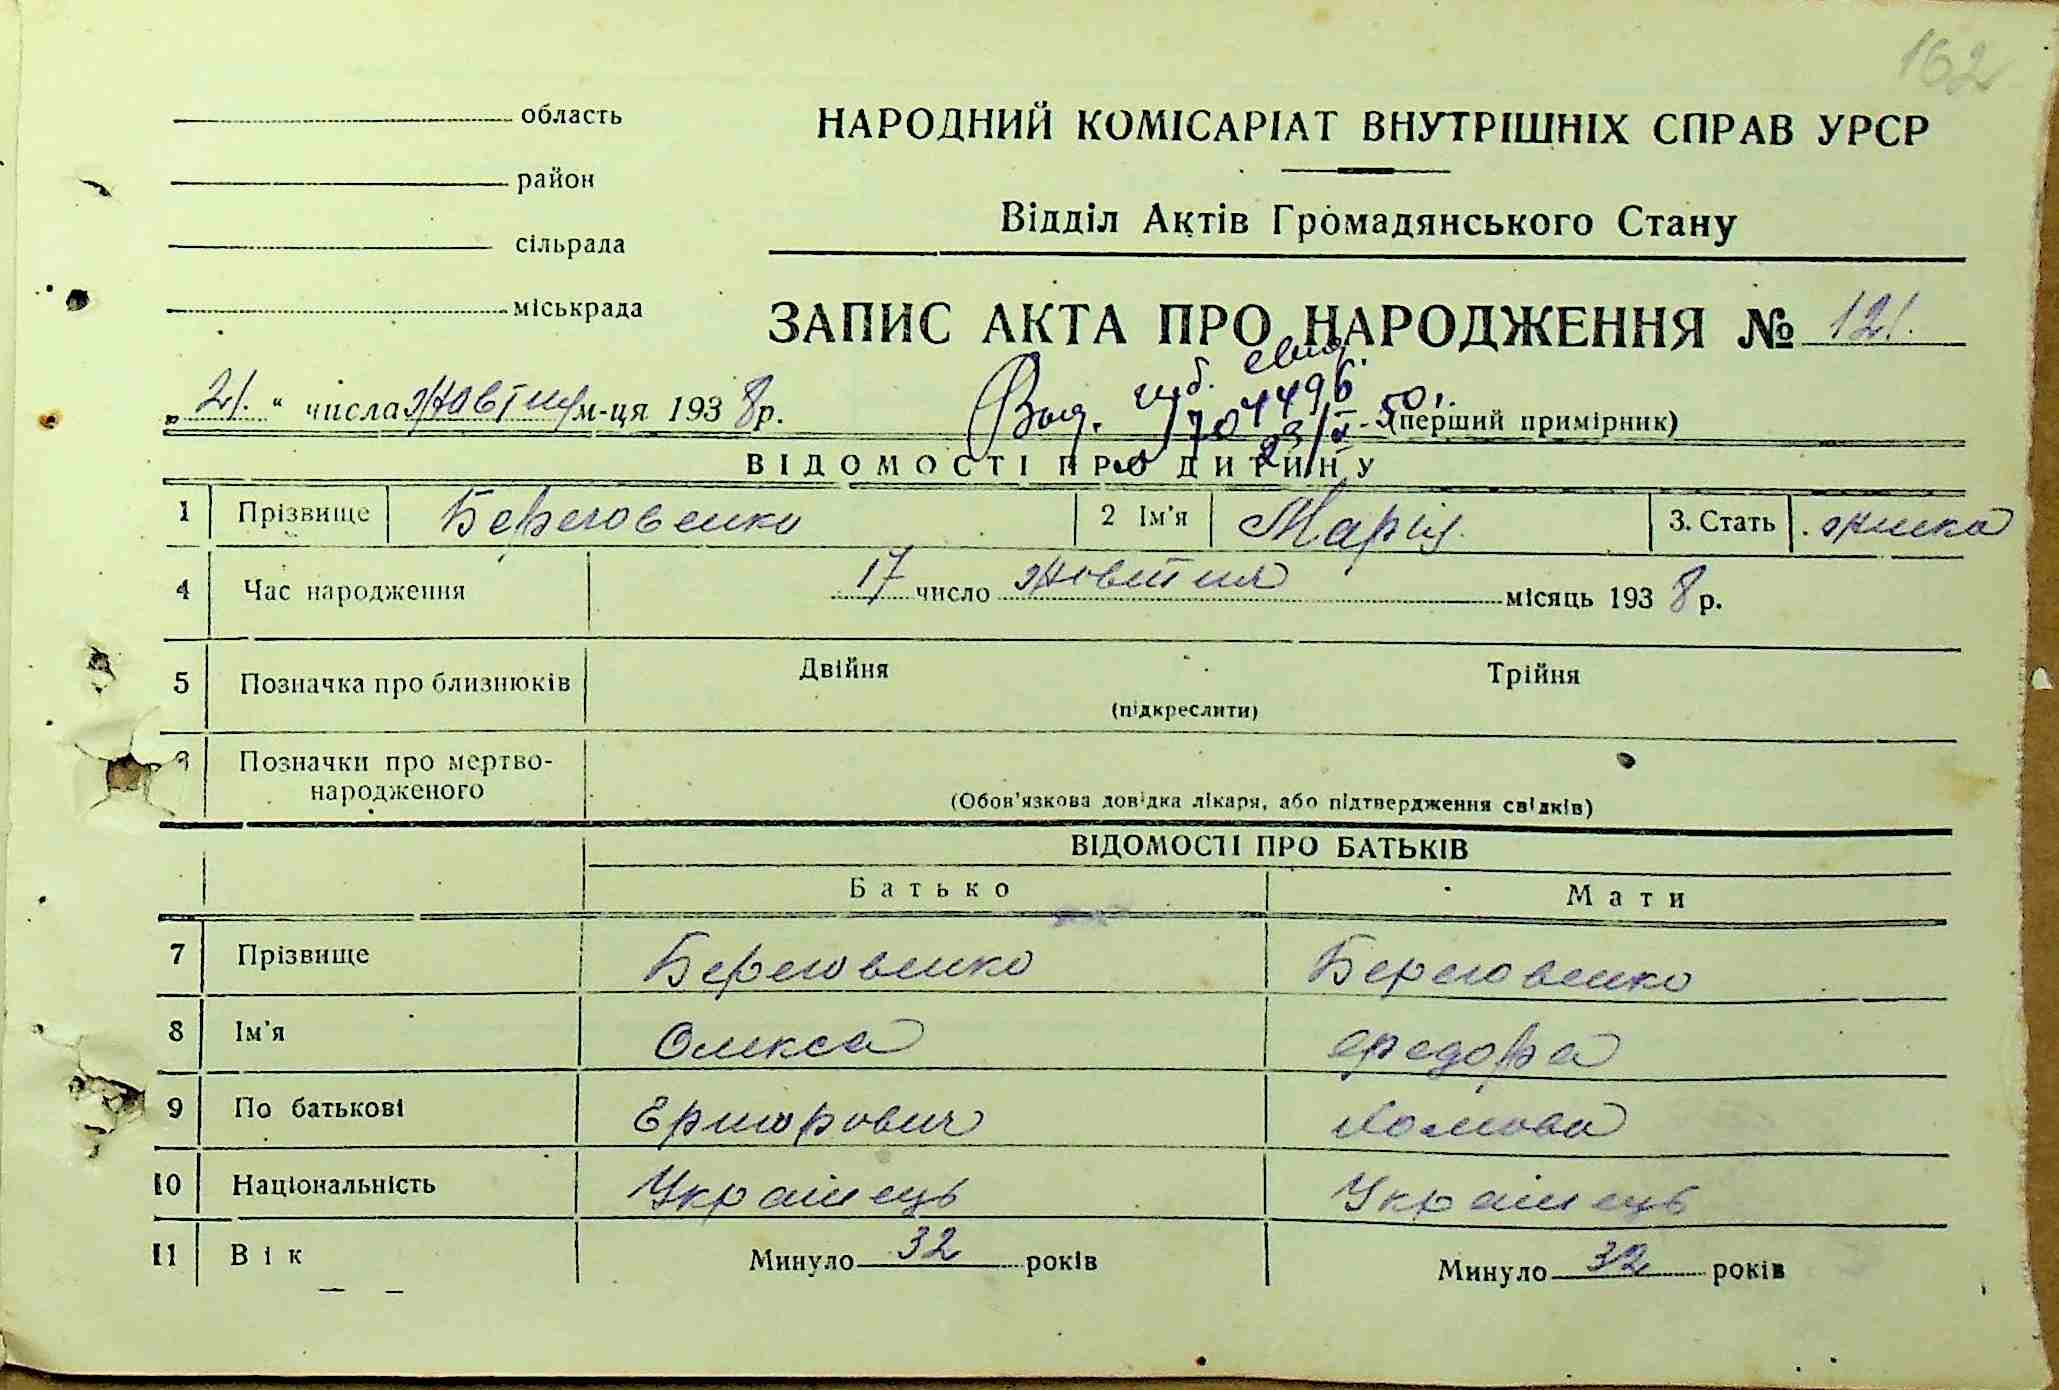 162
область
НАРОДНИЙ КОМІСАРІАТ ВНУТРІШНІХ СПРАВ УРСР
район
Відділ Актів Громадянського Стану
сільрада
міськрада
ЗАПИС АКТА ПРО НАРОДЖЕННЯ № 121.
„21.“ числа жовтня м-ця 1938р.
(перший примірник)
ВІДОМОСТІ ПРО ДИТИНУ
1 Прізвище Береговенко 2 Ім'я Марія 3. Стать жінка
4 Час народження 17 число жовтня місяць 1938 р.
5 Позначка про близнюків Двійня Трійня
(підкреслити)
Позначки про мертво-
народженого
(Обов'язкова довідка лікаря, або підтвердження свідків)
ВІДОМОСТІ ПРО БАТЬКІВ
Батько Мати
7 Прізвище Береговенко Береговенко
8 Ім'я Олекса Федора
9 По батькові
10 Національність Українець Українець
11 Вік Минуло 32 років Минуло 32 років